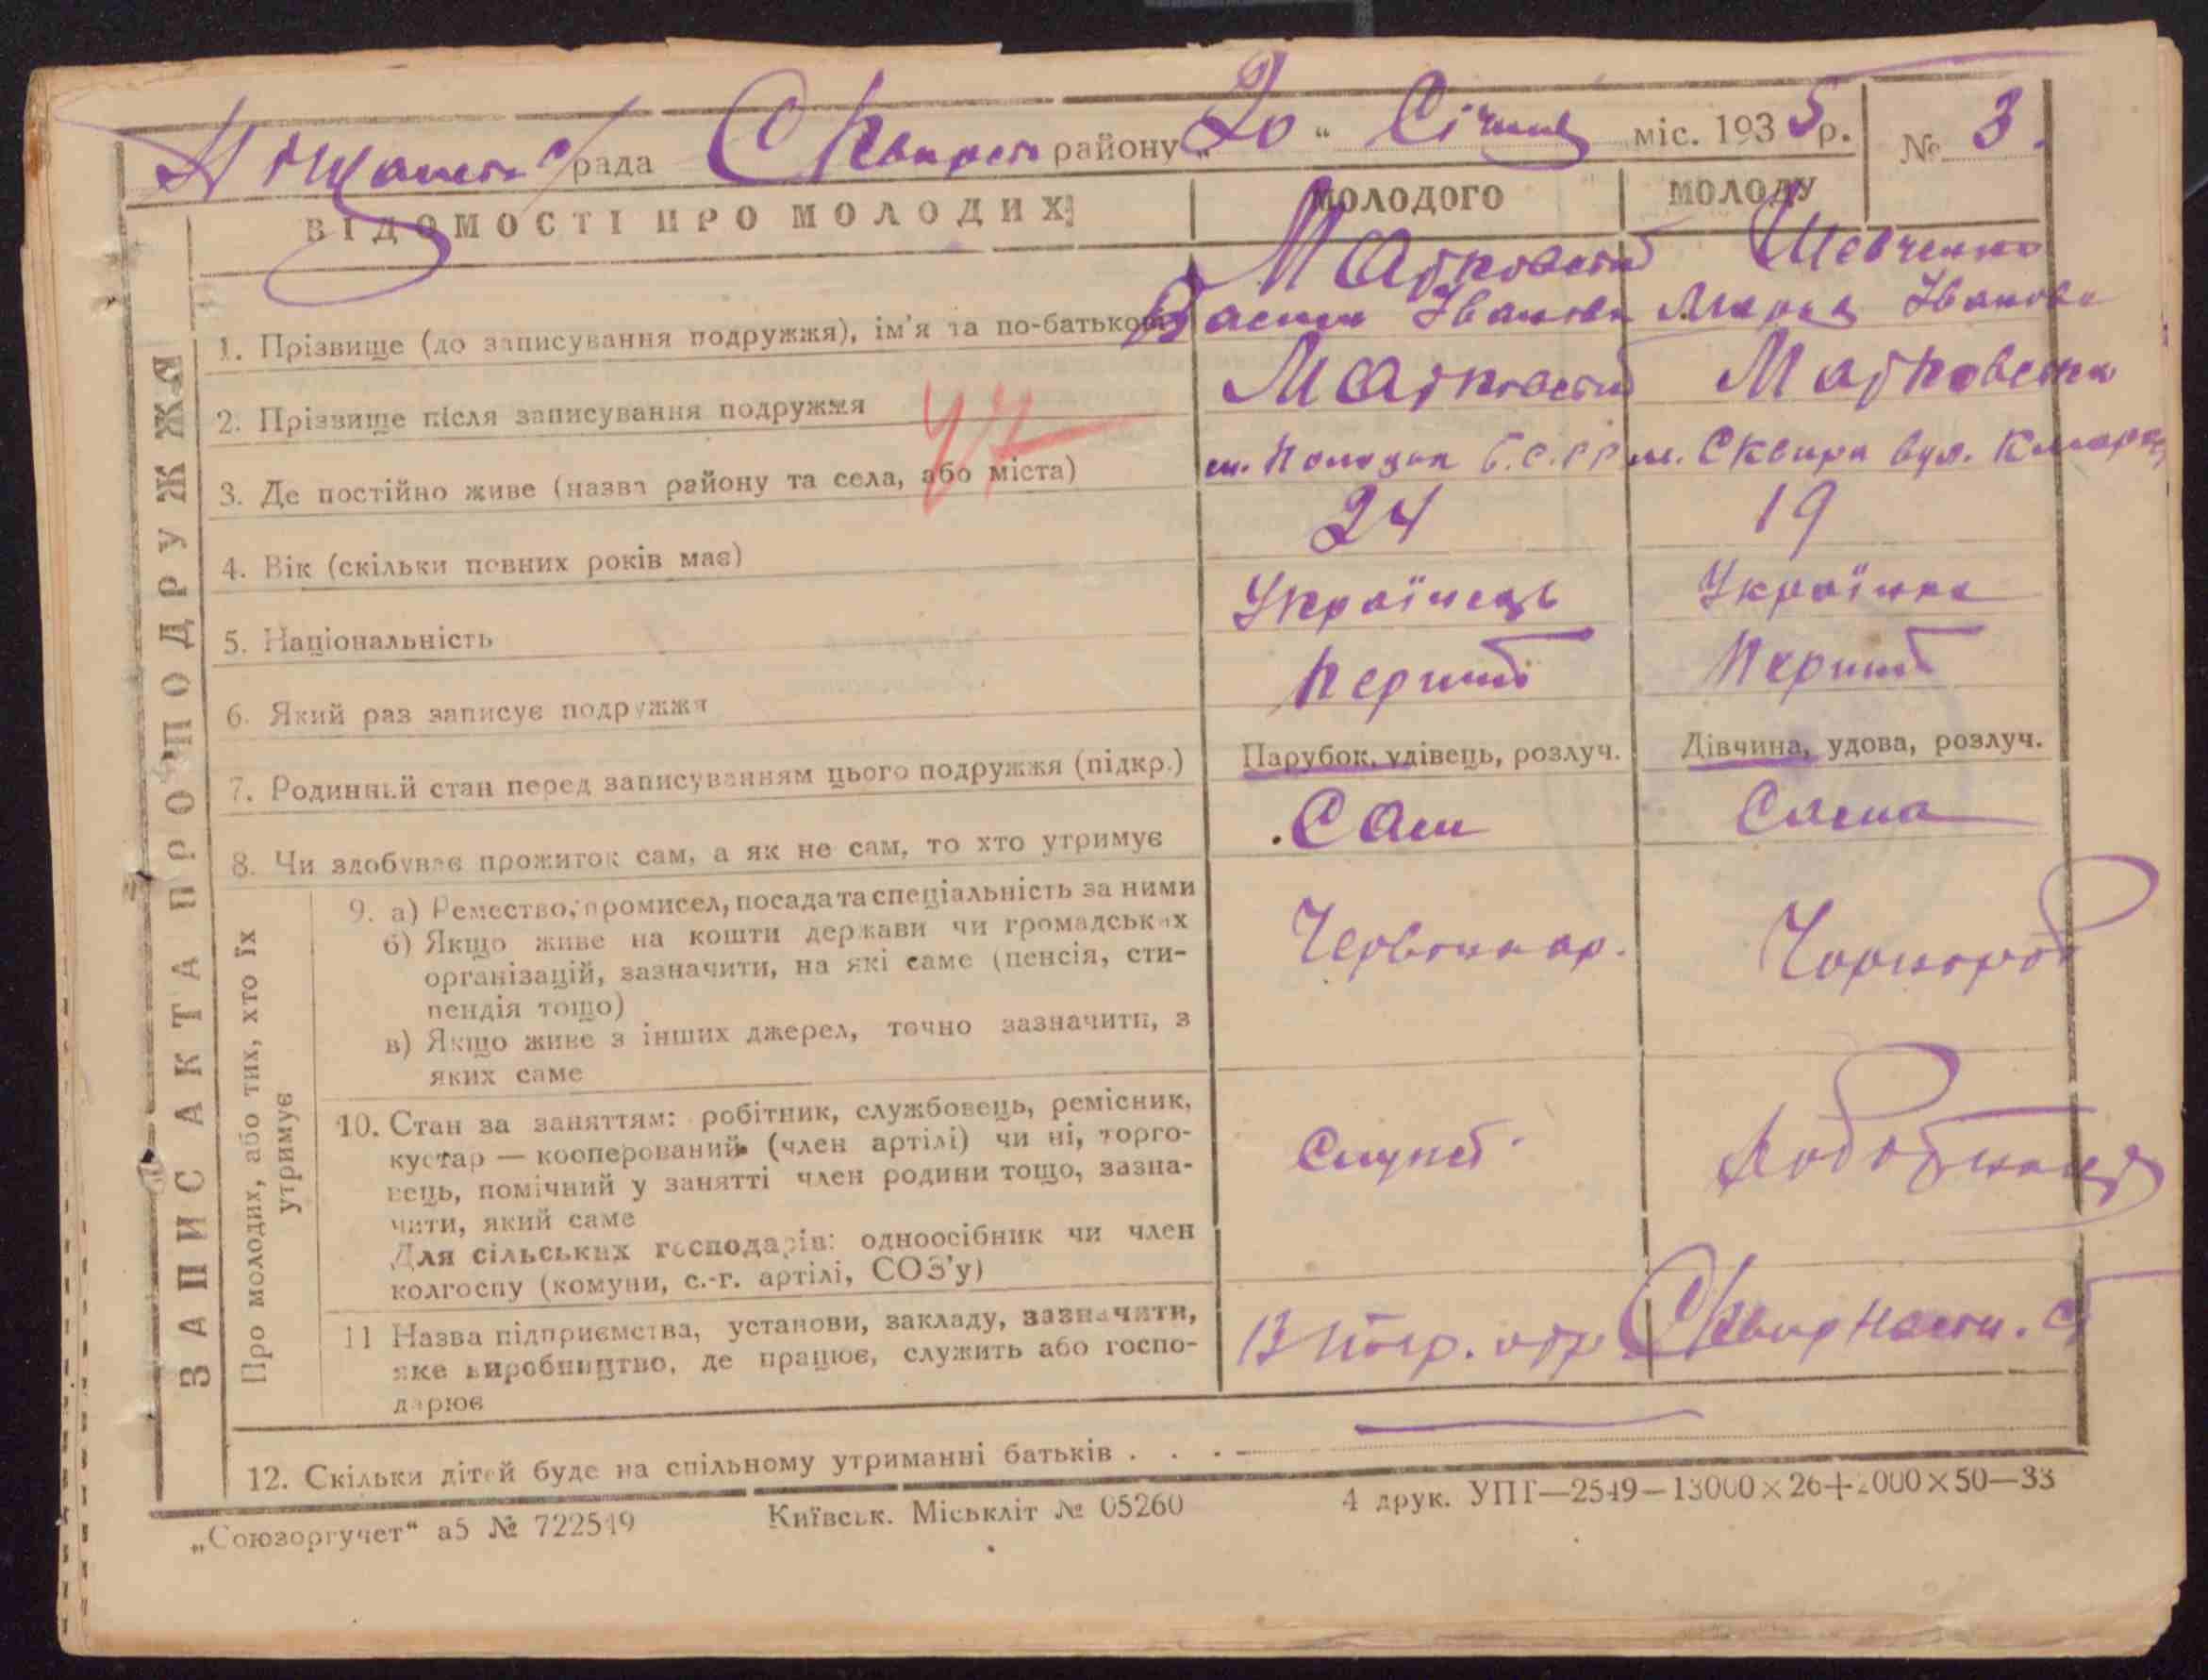 рада Сквирсь району „20“ Січня міс. 1935р. № 3.
ВІДОМОСТІ ПРО МОЛОДИХ МОЛОДОГО МОЛОДУ
ЗАПИС АКТА ПРО ПОДРУЖЖЯ
Шевченко
1. Прізвище (до записування подружжя), ім'я та по-батькові Василь Іванов Марія Іванов
2. Прізвище після записування подружжя
3. Де постійно живе (назва району та села, або міста) Б.С.С.Р м. Сквира вул.
4. Вік (скільки повних років має) 24 19
5. Національність Українець Українка
6. Який раз записує подружжя Перший Перший
7. Родинный стан перед записуванням цього подружжя (підкр.) Парубок, удівець, розлуч. Дівчина, удова, розлуч.
8. Чи здобуває прожиток сам, а як не сам, то хто утримує Сам Сама
Про молодих, або тих, хто їх
утримує
9. а) Ремество, промисел, посада та спеціальність за ними
б) Якщо живе на кошти держави чи громадських
організацій, зазначити, на які саме (пенсія, сти-
пендія тощо)
в) Якщо живе з інших джерел, точно зазначити, з
яких саме
Червоноар. Чорнороб
10. Стан за заняттям: робітник, службовець, ремісник,
кустар — кооперований (член артілі) чи ні, торго-
вець, помічний у занятті член родини тощо, зазна-
чити, який саме
Для сільських господарів: одноосібник чи член
колгоспу (комуни, с.-г. артілі, СОЗ'у)
Служб. Робітниця
11 Назва підприємства, установи, закладу, зазначити,
яке виробництво, де працює, служить або госпо-
дарює
12. Скільки дітей буде на спільному утриманні батьків . . . —
„Союзоргучет“ а5 № 722549 Київськ. Міськліт № 05260 4 друк. УПІ—2549—13000×26+2000×50—33